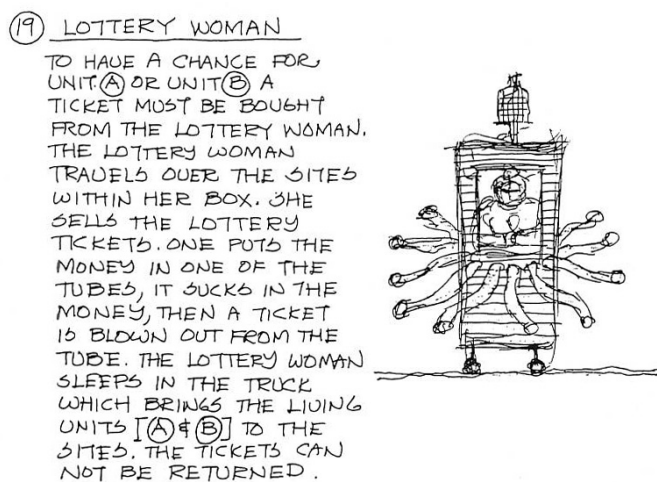 19 LOTTERY WOMAN
TO HAVE A CHANCE FOR
UNIT A OR UNIT B A
TICKET MUST BE BOUGHT
FROM THE LOTTERY WOMAN.
THE LOTTERY WOMAN
TRAVELS OVER THE SITES
WITHIN HER BOX. SHE
SELLS THE LOTTERY
TICKETS. ONE PUTS THE
MONEY IN ONE OF THE
TUBES, IT SUCKS IN THE
MONEY, THEN A TICKET
IS BLOWN OUT FROM THE
TUBE. THE LOTTERY WOMAN
SLEEPS IN THE TRUCK
WHICH BRINGS THE LIVING
UNITS [A & B] TO THE
SITES. THE TICKETS CAN
NOT BE RETURNED.